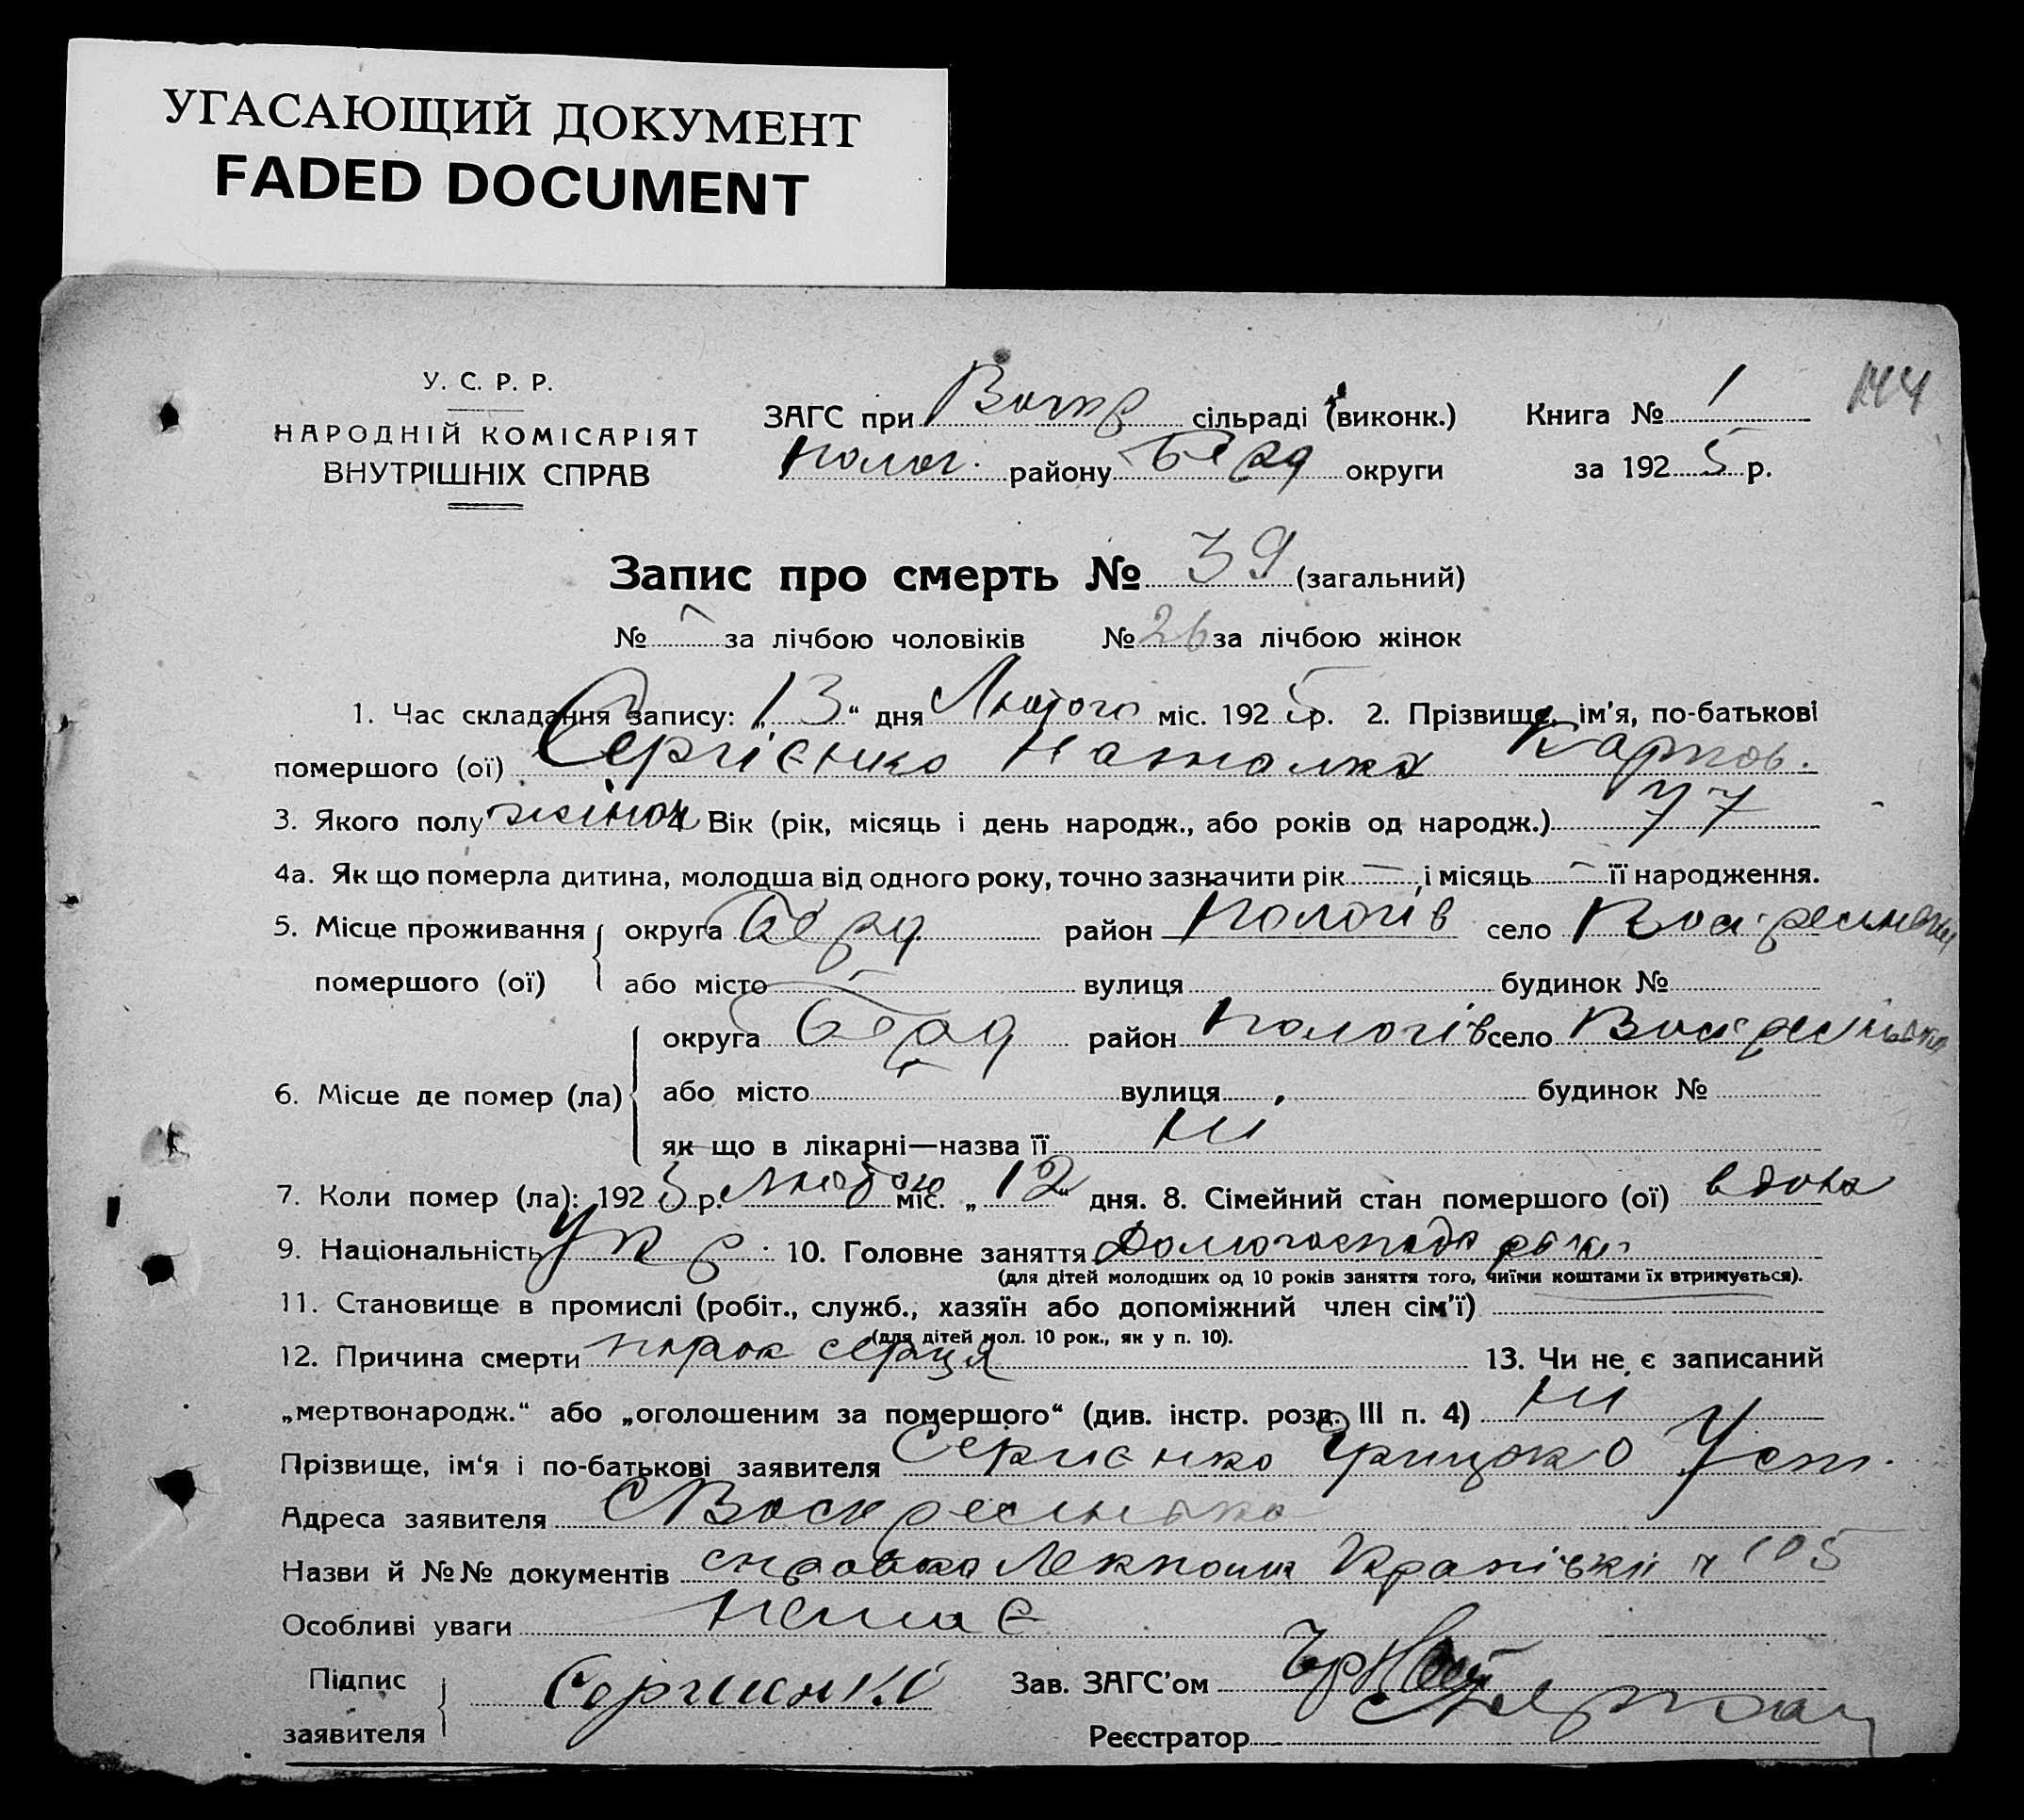 УГАСАЮЩИЙ ДОКУМЕНТ
FADED DOCUMENT
У. С. Р. Р.
НАРОДНІЙ КОМІСАРІЯТ
ВНУТРІШНІХ СПРАВ
ЗАГС при Воскр сільраді (виконк.)
Полог. району Берд округи
Книга № 1
144
за 1925 р.
Запис про смерть № 39 (загальний)
№ - за лічбою чоловіків № 26 за лічбою жінок
1. Час складання запису: „13“ дня Лютого міс. 1925 р. 2. Прізвище, ім'я, по-батькові
помершого (ої) Сергієнко Наталка Карпов.
3. Якого полу жіноч Вік (рік, місяць і день народж., або років од народж.) 77
4а. Як що померла дитина, молодша від одного року, точно зазначити рік — , і місяць — її народження.
5. Місце проживання помершого (ої) округа Берд район Пологів село Воскресенка
або місто — вулиця будинок №
6. Місце де помер (ла) округа Берд район Пологів село Воскресенька
або місто вулиця будинок №
як що в лікарні—назва її ні
7. Коли помер (ла): 1925 р. Лютого міс. „12“ дня. 8. Сімейний стан помершого (ої) вдова
9. Національність Укр. 10. Головне заняття
(для дітей молодших од 10 років заняття того, чиїми коштами їх втримується).
11. Становище в промислі (робіт., служб., хазяїн або допоміжний член сім'ї)
(для дітей мол. 10 рок., як у п. 10).
12. Причина смерти порок серця 13. Чи не є записаний
„мертвонародж.“ або „оголошеним за помершого“ (див. інстр. розд. III п. 4) ні
Прізвище, ім'я і по-батькові заявителя Сергиєнко Грицько Уст.
Адреса заявителя С Воскресенька
Назви й №№ документів справка 105
Особливі уваги немає
Підпис заявителя Сергиенко
Зав. ЗАГС'ом
Реєстратор